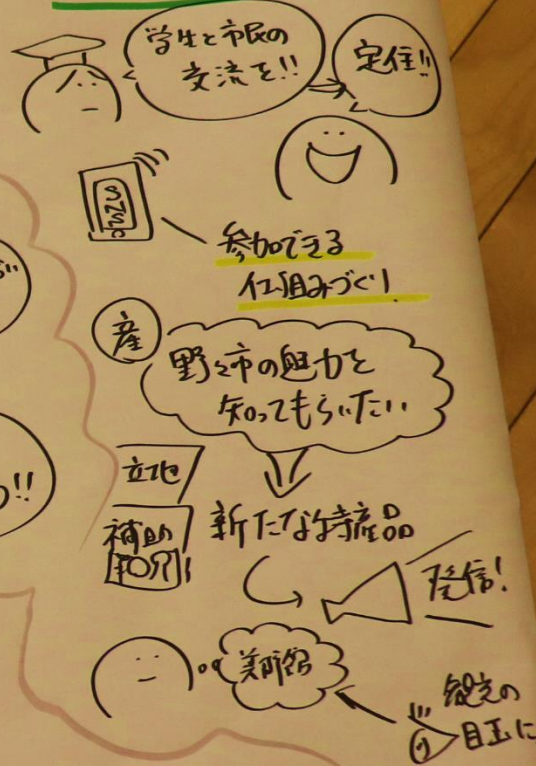 学生と市民の
交流を!!
定住!!
SNSとか
参加できる
仕組みづくり!
産
野々市の魅力を
知ってもらいたい
立地
補助
新たな特産品
発信!
美術館
観光の
目玉に
!!